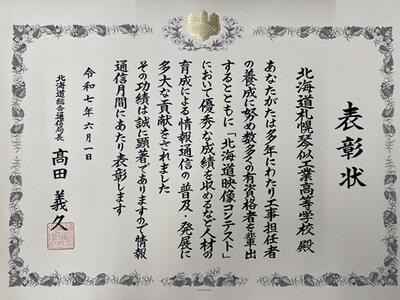 表彰状
北海道札幌琴似工業高等学校 殿
あなたがたは多年にわたり工事担任者
の養成に努め数多くの有資格者を輩出
するとともに「北海道映像コンテスト」
において優秀な成績を収めるなど人材の
育成による情報通信の普及・発展に
多大な貢献をされました
その功績は誠に顕著でありますので情報
通信月間にあたり表彰します
令和七年六月一日
北海道総合通信局長
髙田 義久